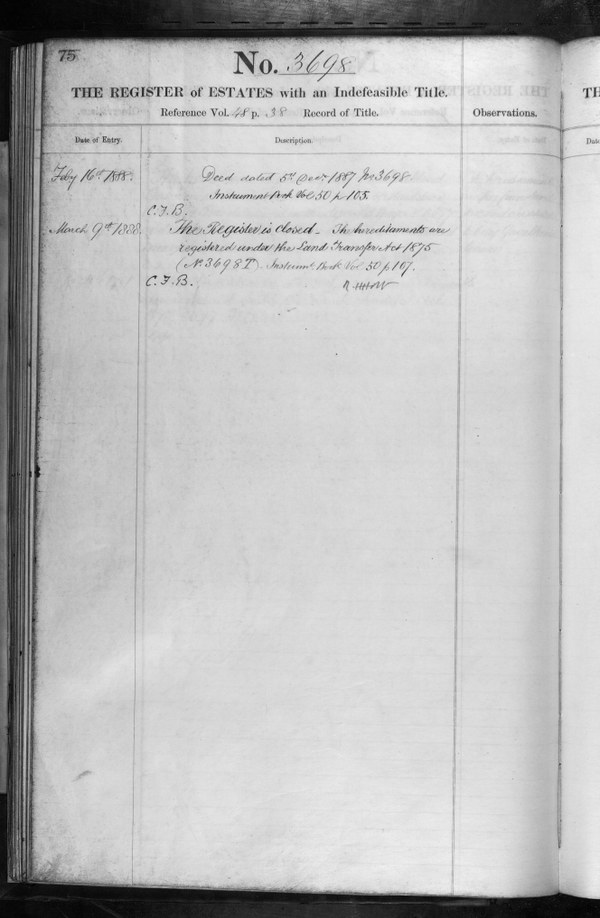 75
No. 3698
THE REGISTER of ESTATES with an Indefeasible Title.
Reference Vol. 48 p. 38 Record of Title.
Observations.
Date of Entry.
Description.
Feby 16th 1888.
Deed dated 5th Decr 1887 No 3698
Instrument Book Vol 50 p 105.
C.F.B.
March 9th 1888.
The Register is closed. The hereditaments are
registered under the Land Transfer Act 1875
(No 3698T) Instrumt Book Vol 50 p 107.
C.F.B.
TH
Date